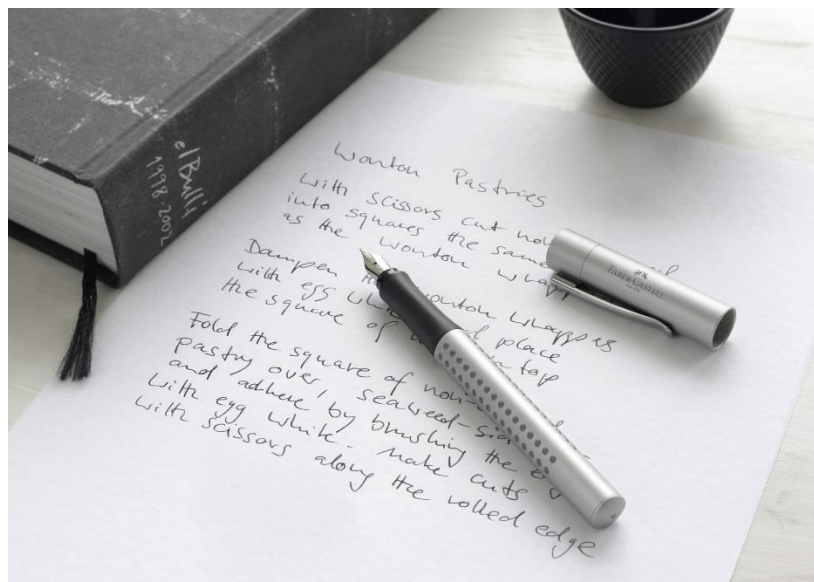 elBulli
1998-2002
Wonton Pastries
With scissors cut
into squares the same
as the wonton
Dampen wonton wrappers
with egg white place
the square of top
Fold the square of non-
pastry over, seaweed-
and adhere by brushing the
with egg white. Make cuts
with scissors along the rolled edge
FABER-CASTELL